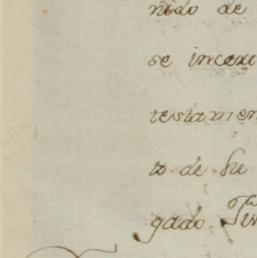 nido de
se incere
testamen
to de he
gado Tin